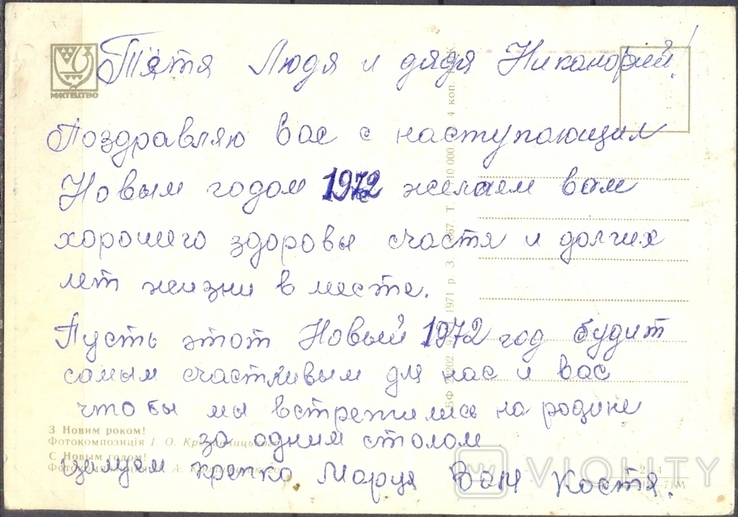 Тётя Людя и дядя Никанорий!
МИСТЕЦТВО
Поздравляю вас с наступающим
Новым годом 1972 желаем вам
хорошего здоровы счастя и долгих
лет жизни в месте.
Пусть этот Новый 1972 год будит
самым счастливым для нас и вас
что бы мы встретились на родине
за одним столом
целуем крепко Маруя Ваня Костя.
З Новим роком!
Фотокомпозиція І. О.
С Новым годом!
4 коп.
1971 р.
VIOLITY